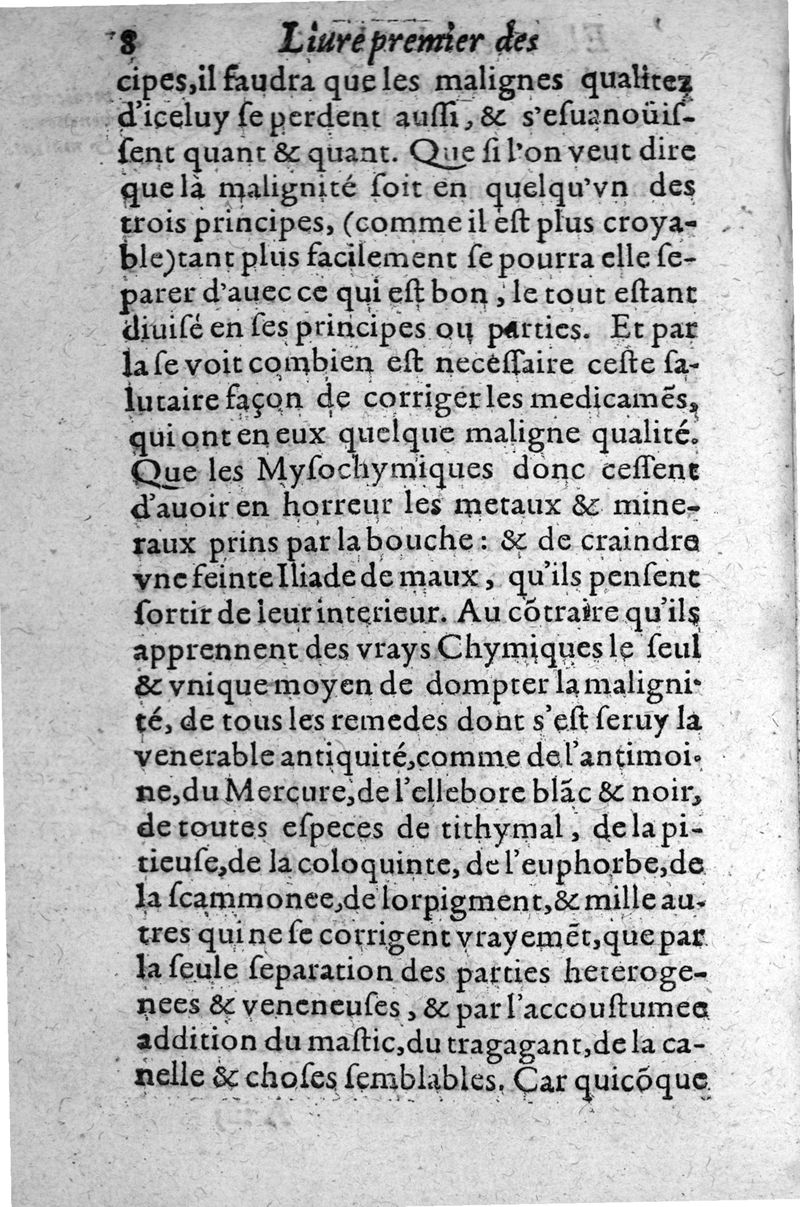 8 Liure premier des
cipes,il faudra que les malignes qualitez
d'iceluy ſe perdent auſſi, & s'eſuanoüiſ-
ſent quant & quant. Que ſi l'on veut dire
que la malignité ſoit en quelqu'vn des
trois principes, (comme il eſt plus croya-
ble)tant plus facilement ſe pourra elle ſe-
parer d'auec ce qui eſt bon, le tout eſtant
diuiſé en ſes principes ou parties. Et par
la ſe voit combien eſt neceſſaire ceſte ſa-
lutaire façon de corriger les medicamẽs,
qui ont en eux quelque maligne qualité.
Que les Myſochymiques donc ceſſent
d'auoir en horreur les metaux & mine-
raux prins par la bouche: & de craindre
vne feinte Iliade de maux, qu'ils penſent
ſortir de leur interieur. Au cõtraire qu'ils
apprennent des vrays Chymiques le ſeul
& vnique moyen de dompter la maligni-
té, de tous les remedes dont s'eſt ſeruy la
venerable antiquité,comme de l'antimoi-
ne,du Mercure,de l'ellebore blãc & noir,
de toutes eſpeces de tithymal, de la pi-
tieuſe,de la coloquinte, de l'euphorbe,de
la ſcammonee,de lorpigment,& mille au-
tres qui ne ſe corrigent vrayemẽt,que par
la ſeule ſeparation des parties heteroge-
nees & veneneuſes, & par l'accouſtumee
addition du maſtic,du tragagant,de la ca-
nelle & choſes ſemblables. Car quicõque